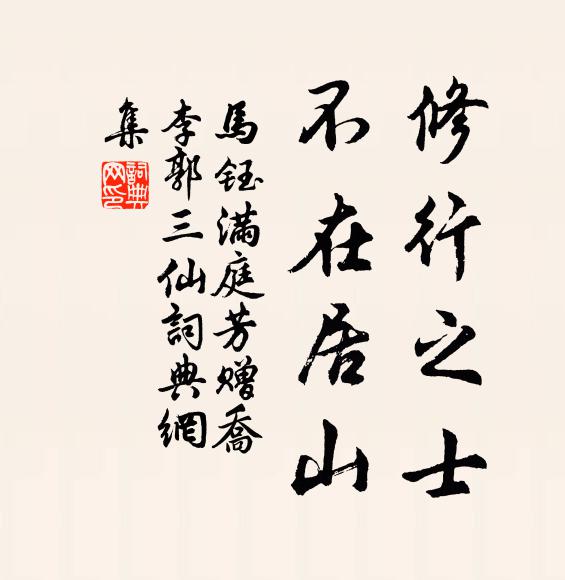 修行之士
不在居山
馬鈺滿庭芳赠喬
李郭三仙詞典網
集
詞典
网印